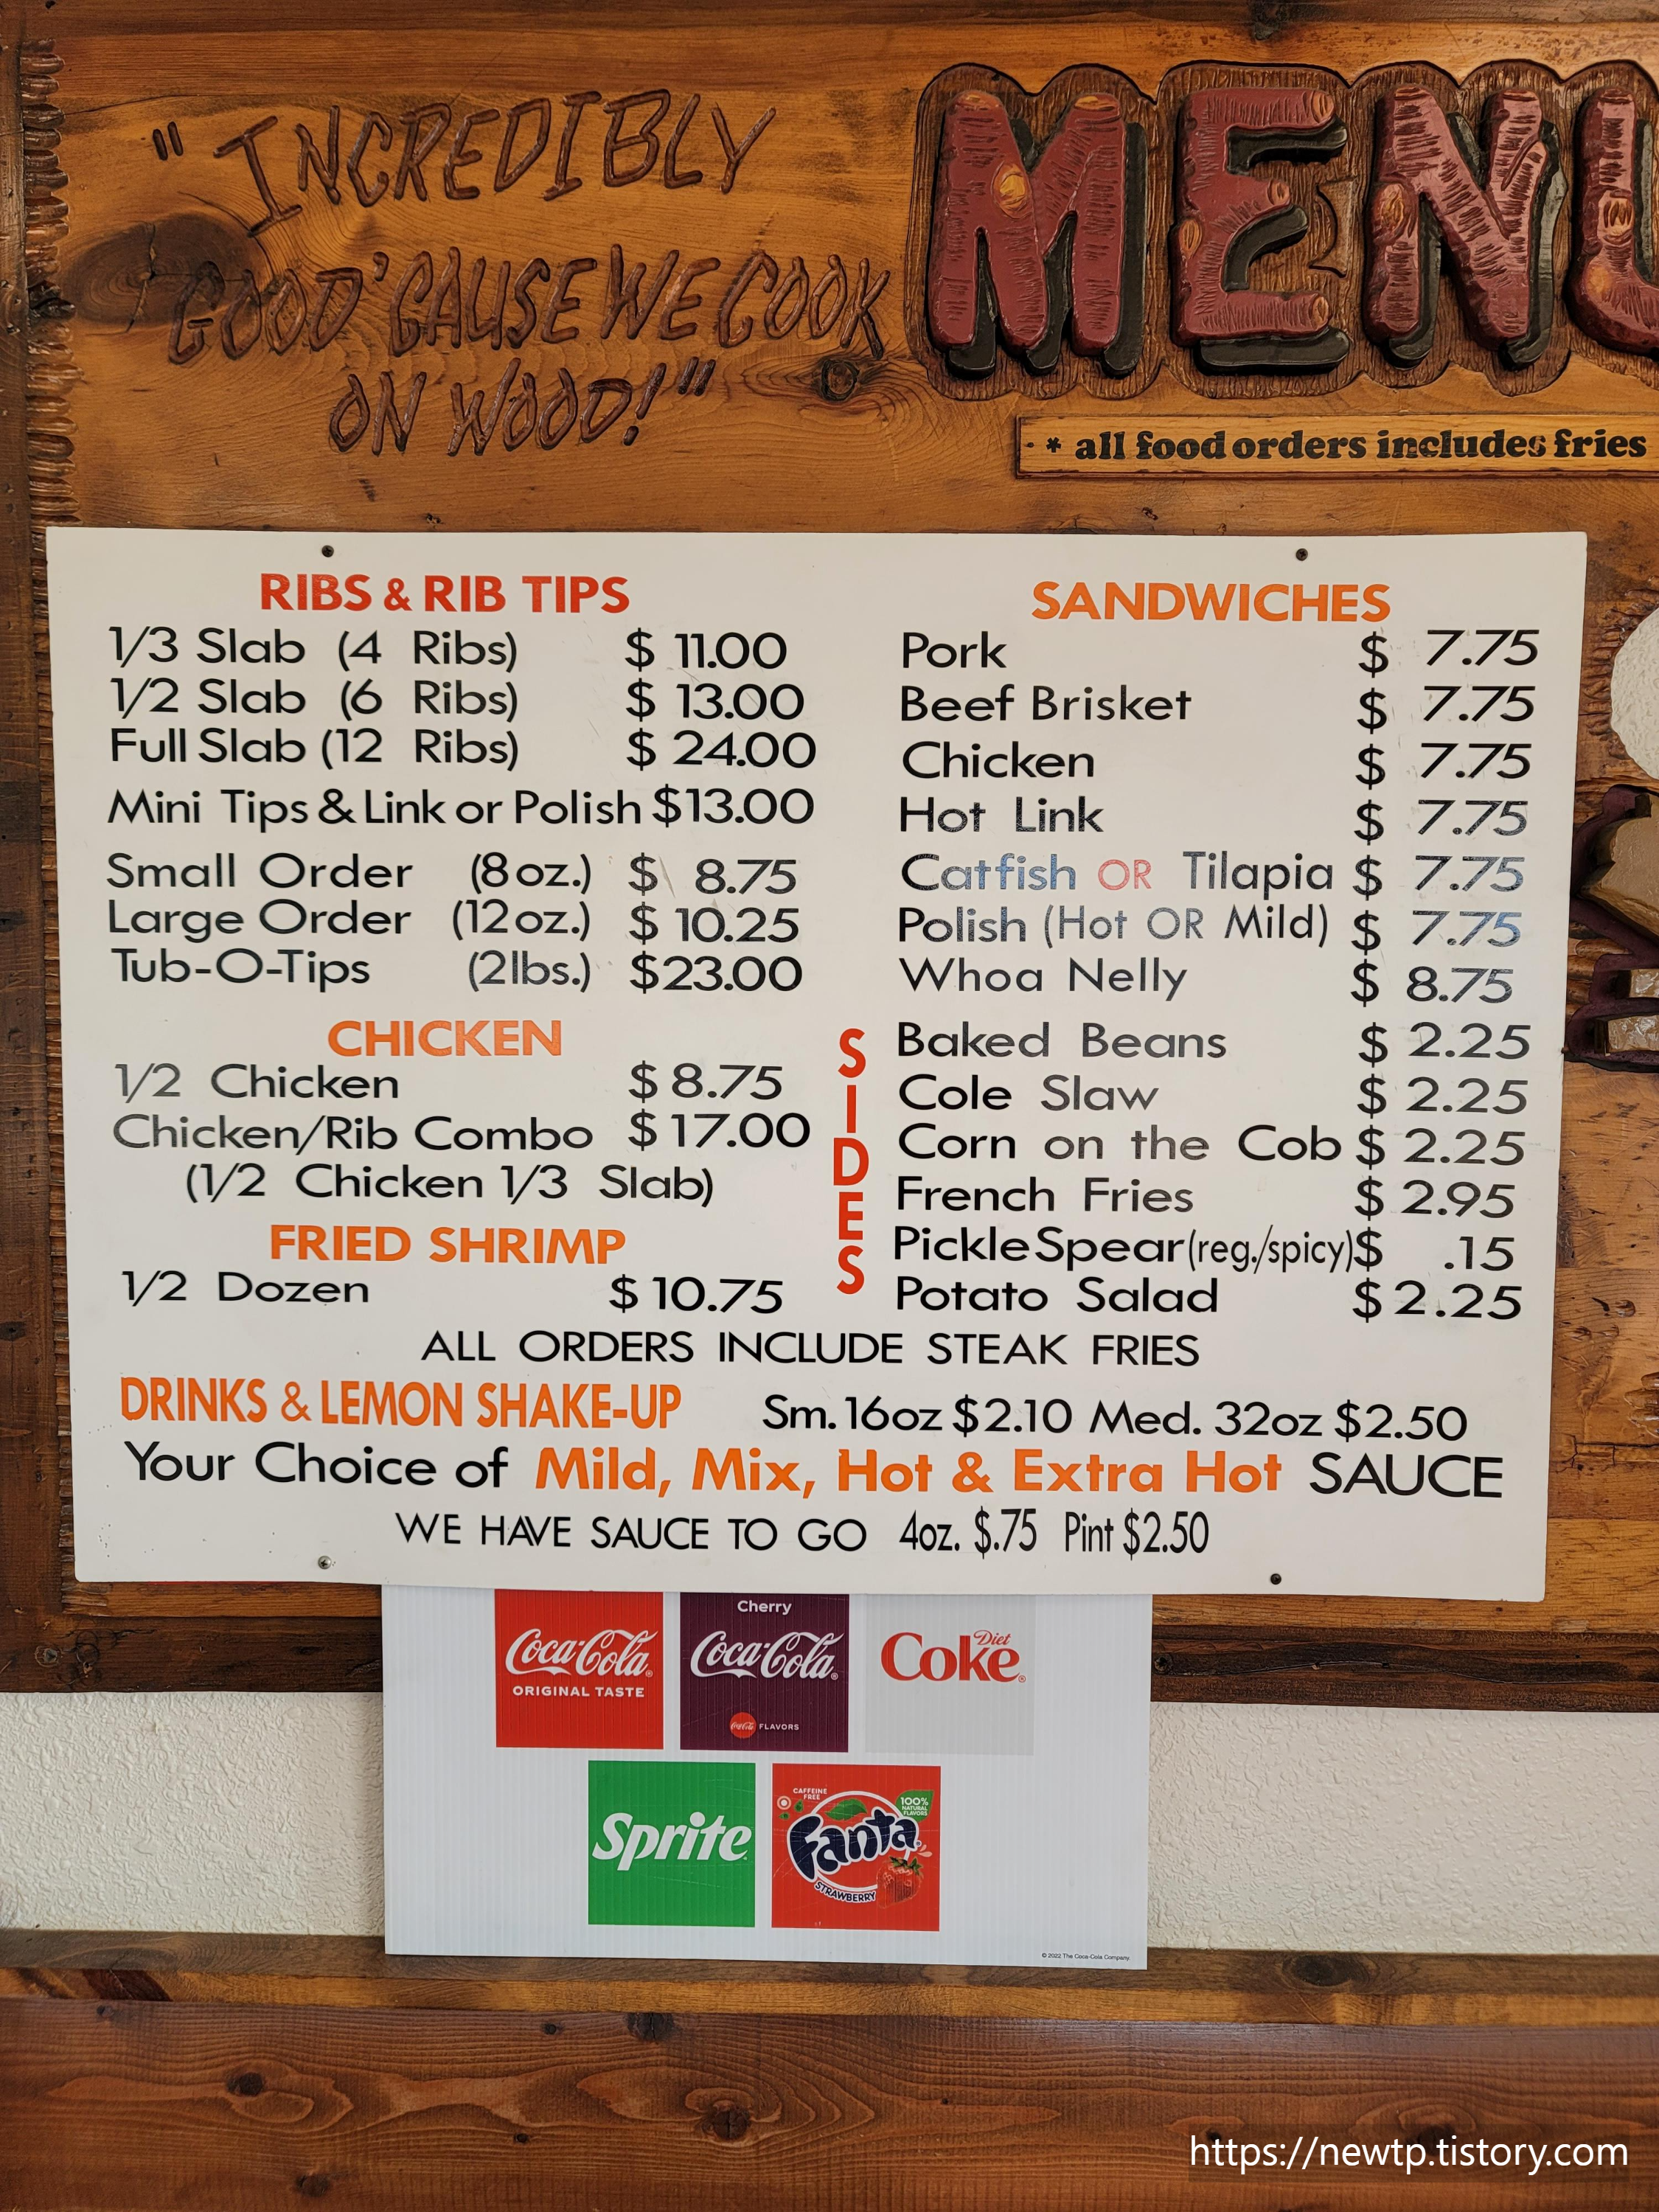 "INCREDIBLY
GOOD 'CAUSE WE COOK
ON WOOD!"
MENU
* all food orders includes fries
RIBS & RIB TIPS
1/3 Slab (4 Ribs) $ 11.00
1/2 Slab (6 Ribs) $ 13.00
Full Slab (12 Ribs) $ 24.00
Mini Tips & Link or Polish $13.00
Small Order (8 oz.) $ 8.75
Large Order (12 oz.) $ 10.25
Tub-O-Tips (2lbs.) $23.00
CHICKEN
1/2 Chicken $ 8.75
Chicken/Rib Combo $ 17.00
(1/2 Chicken 1/3 Slab)
FRIED SHRIMP
1/2 Dozen $ 10.75
SANDWICHES
Pork $ 7.75
Beef Brisket $ 7.75
Chicken $ 7.75
Hot Link $ 7.75
Catfish OR Tilapia $ 7.75
Polish (Hot OR Mild) $ 7.75
Whoa Nelly $ 8.75
SIDES
Baked Beans $ 2.25
Cole Slaw $ 2.25
Corn on the Cob $ 2.25
French Fries $ 2.95
Pickle Spear (reg./spicy) $ .15
Potato Salad $ 2.25
ALL ORDERS INCLUDE STEAK FRIES
DRINKS & LEMON SHAKE-UP Sm. 16oz $2.10 Med. 32oz $2.50
Your Choice of Mild, Mix, Hot & Extra Hot SAUCE
WE HAVE SAUCE TO GO 4oz. $.75 Pint $2.50
Coca-Cola
ORIGINAL TASTE
Cherry
Coca-Cola
Coca-Cola FLAVORS
Diet
Coke
Sprite
CAFFEINE
FREE
100%
NATURAL
FLAVORS
Fanta
STRAWBERRY
© 2022 The Coca-Cola Company.
https://newtp.tistory.com